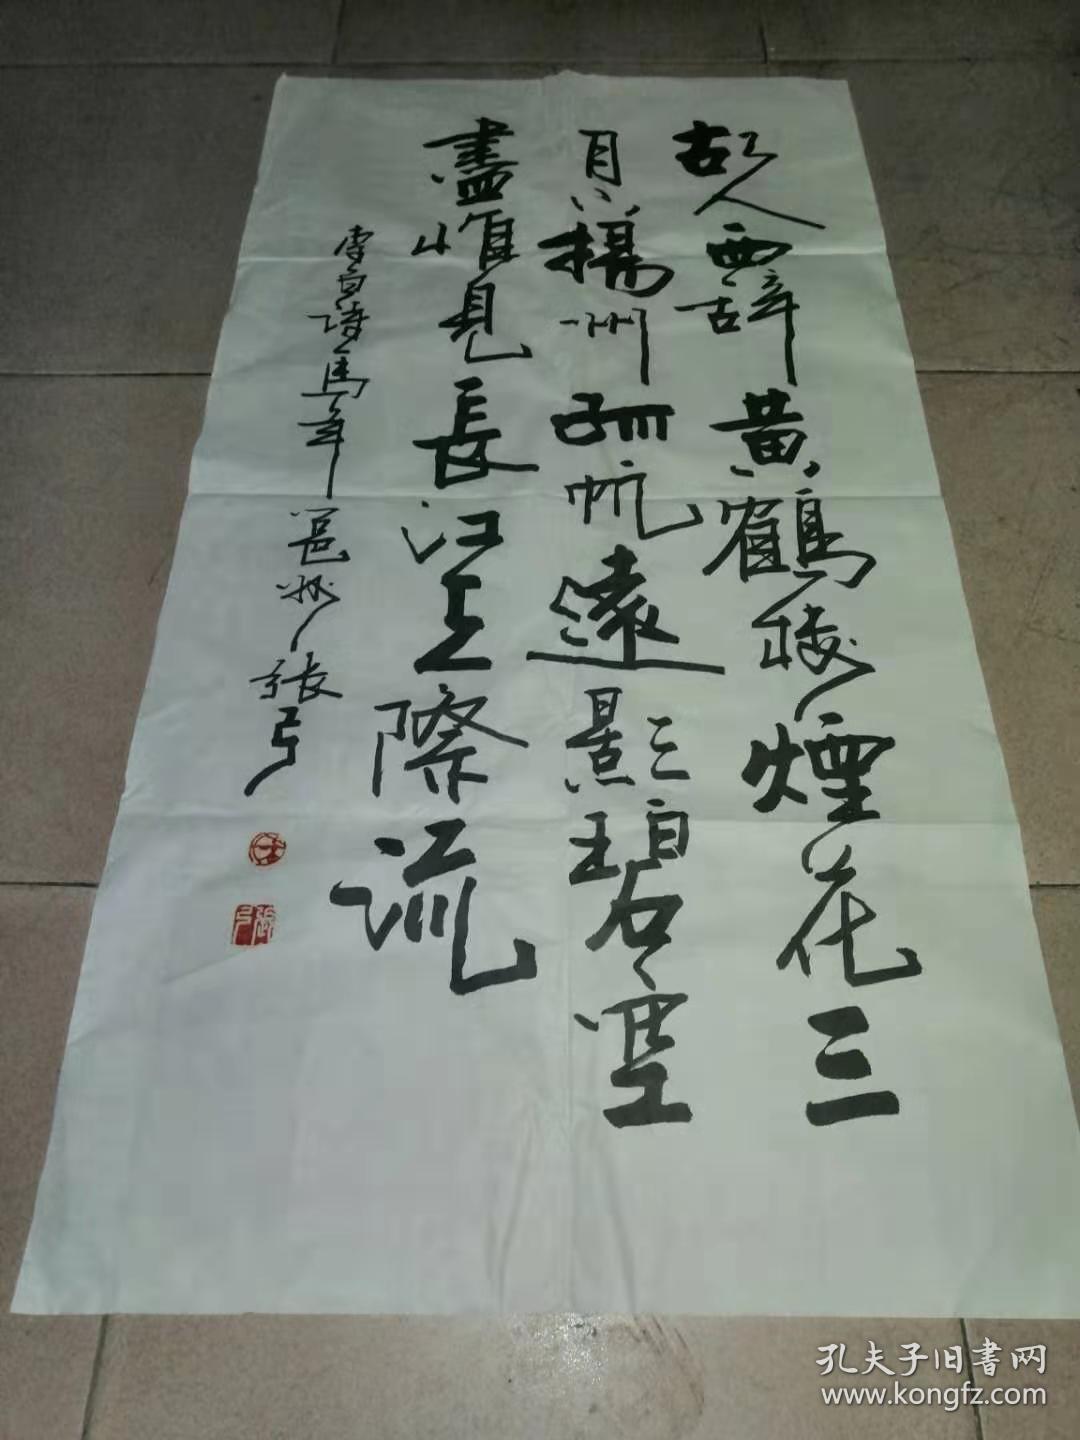 故人西辭黄鶴楼煙花三
月下揚州孤帆遠影碧空
盡惟見長江天際流
李白詩馬年邕州張弓
張弓
孔夫子旧書网
www.kongfz.com